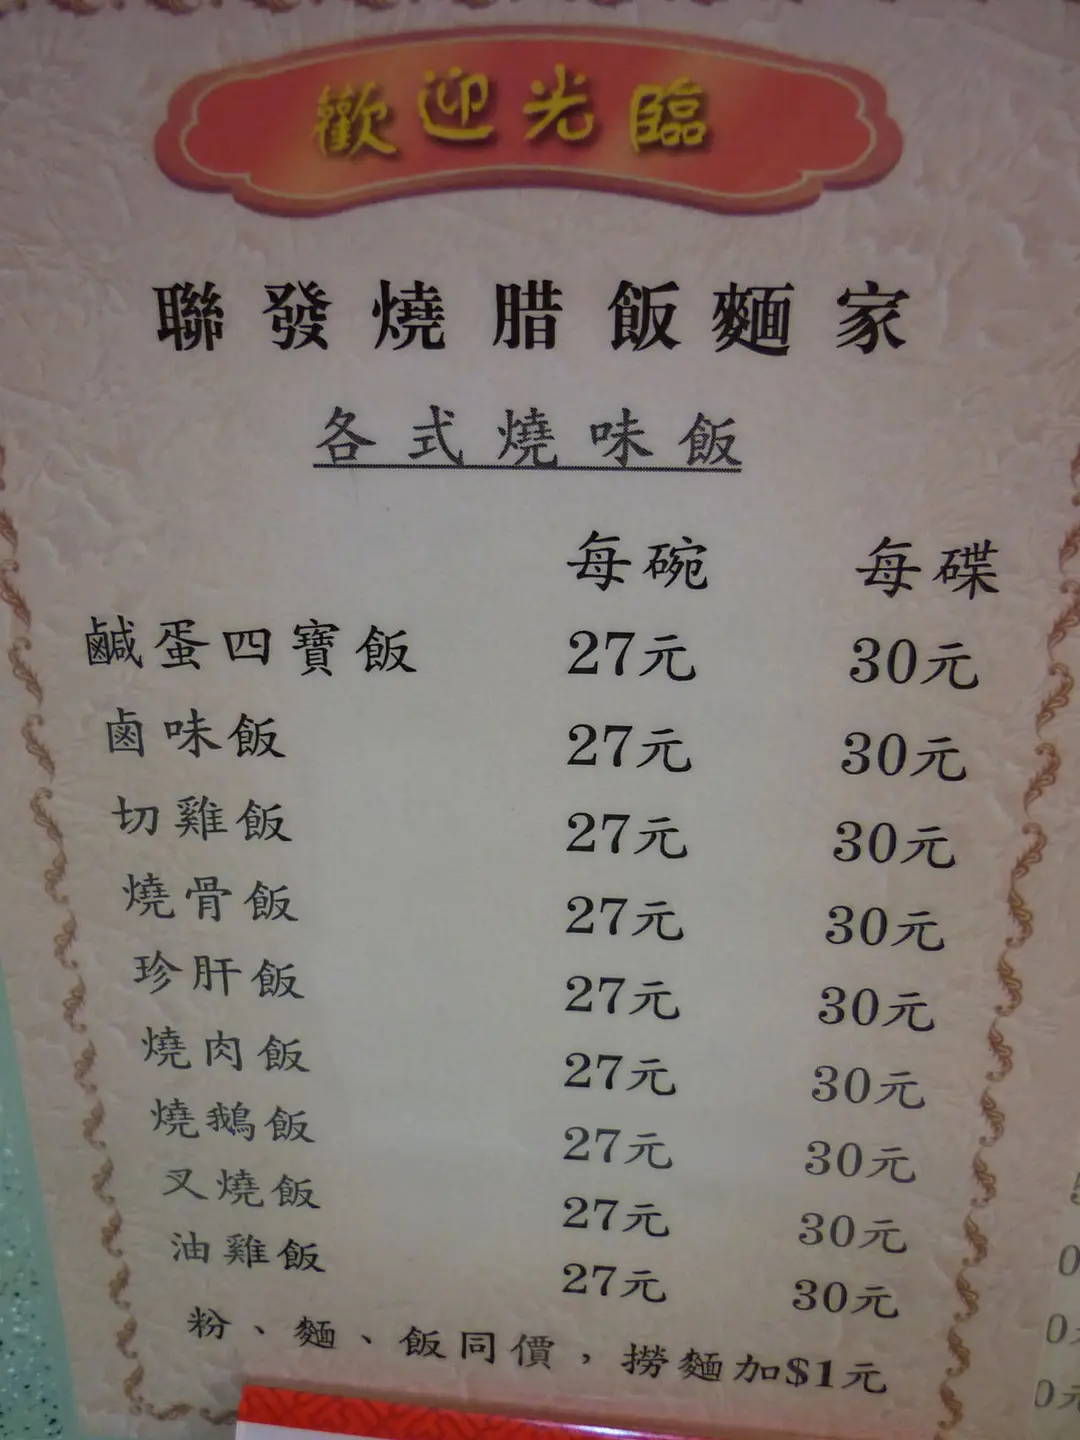 歡迎光臨
聯發燒腊飯麵家
各式燒味飯
每碗 每碟
鹹蛋四寶飯 27元 30元
鹵味飯 27元 30元
切雞飯 27元 30元
燒骨飯 27元 30元
珍肝飯 27元 30元
燒肉飯 27元 30元
燒鵝飯 27元 30元
叉燒飯 27元 30元
油雞飯 27元 30元
粉、麵、飯同價，撈麵加$1元